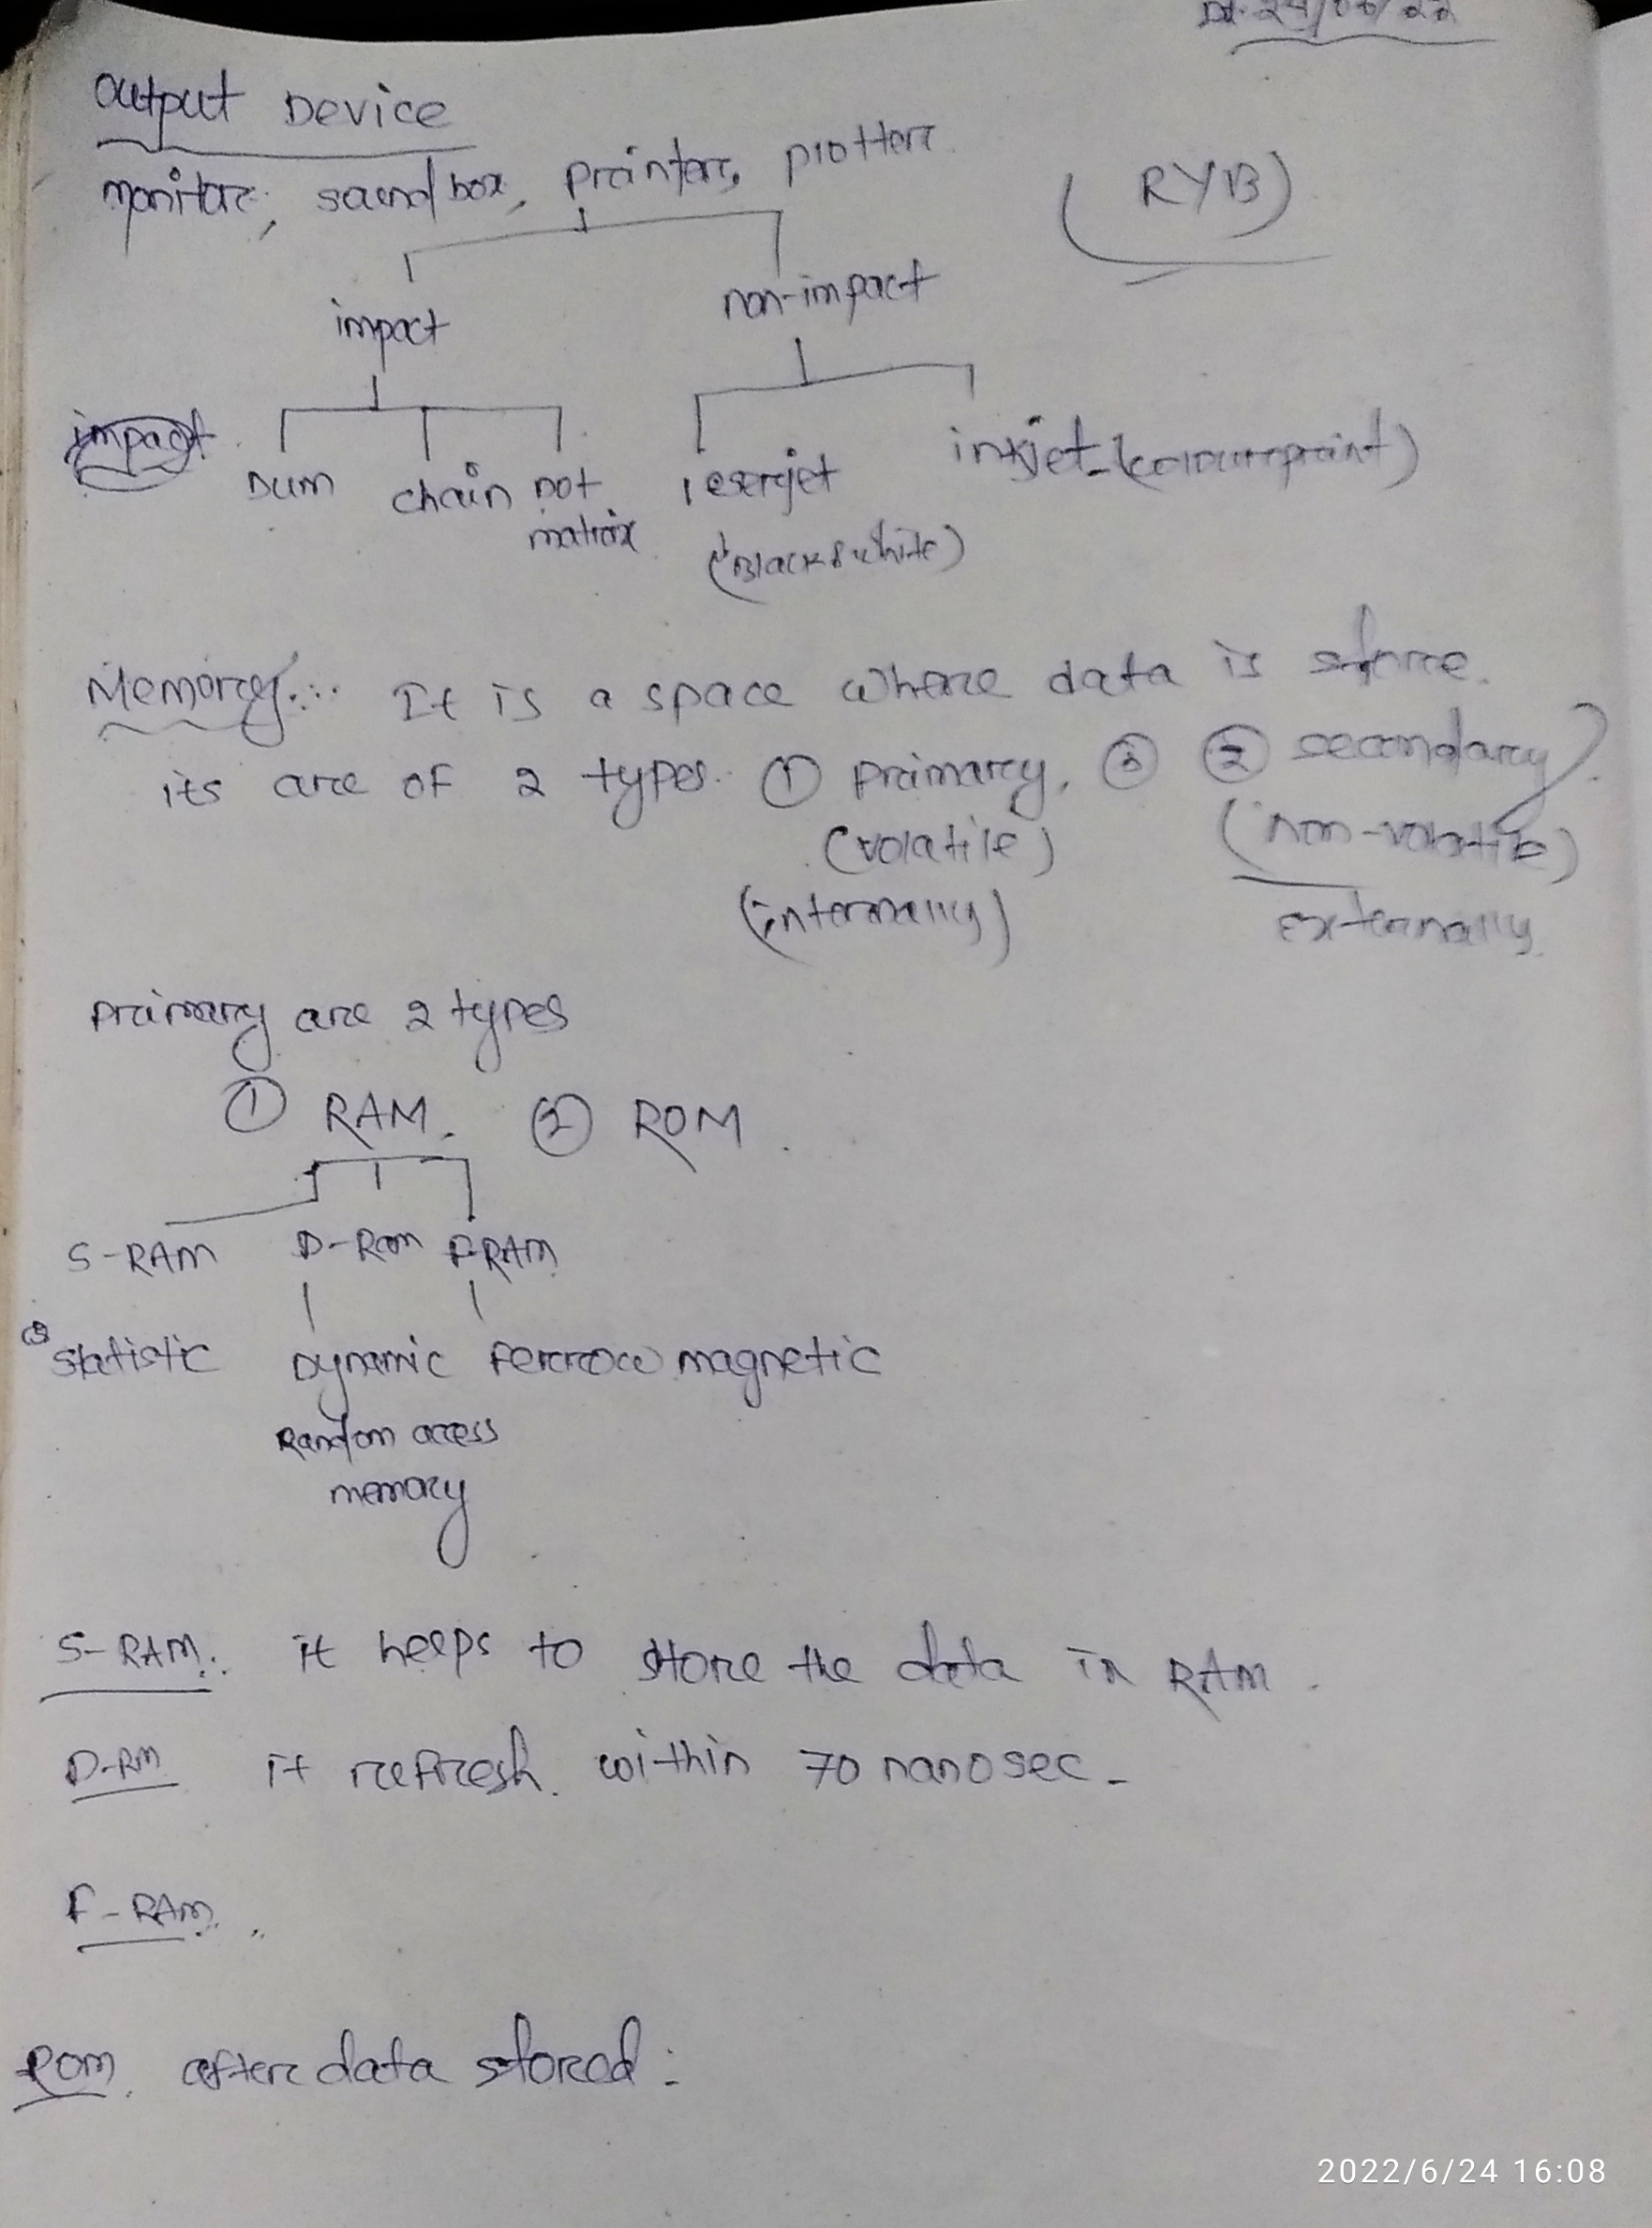 Dt. 24/06/22
output Device
monitor, soundbox, printer, plotter
(RYB)
impact
non-impact
impact
Dum
chain
Dot
matrix
leserjet
(Black & white)
inkjet-(colourprint)
Memory:. It is a space where data is store.
its are of 2 types. ① primary, ② secondary
(volatile)
(non-volatile)
(internally)
externally
primary are 2 types
① RAM. ② ROM.
S-RAM
D-Ram
F-RAM
statistic
Dynamic
ferrow magnetic
Random access
memory
S-RAM:. it helps to store the data in RAM.
D-RM it refresh within 70 nanosec.
F-RAM.
Rom. after data stored:
2022/6/24 16:08